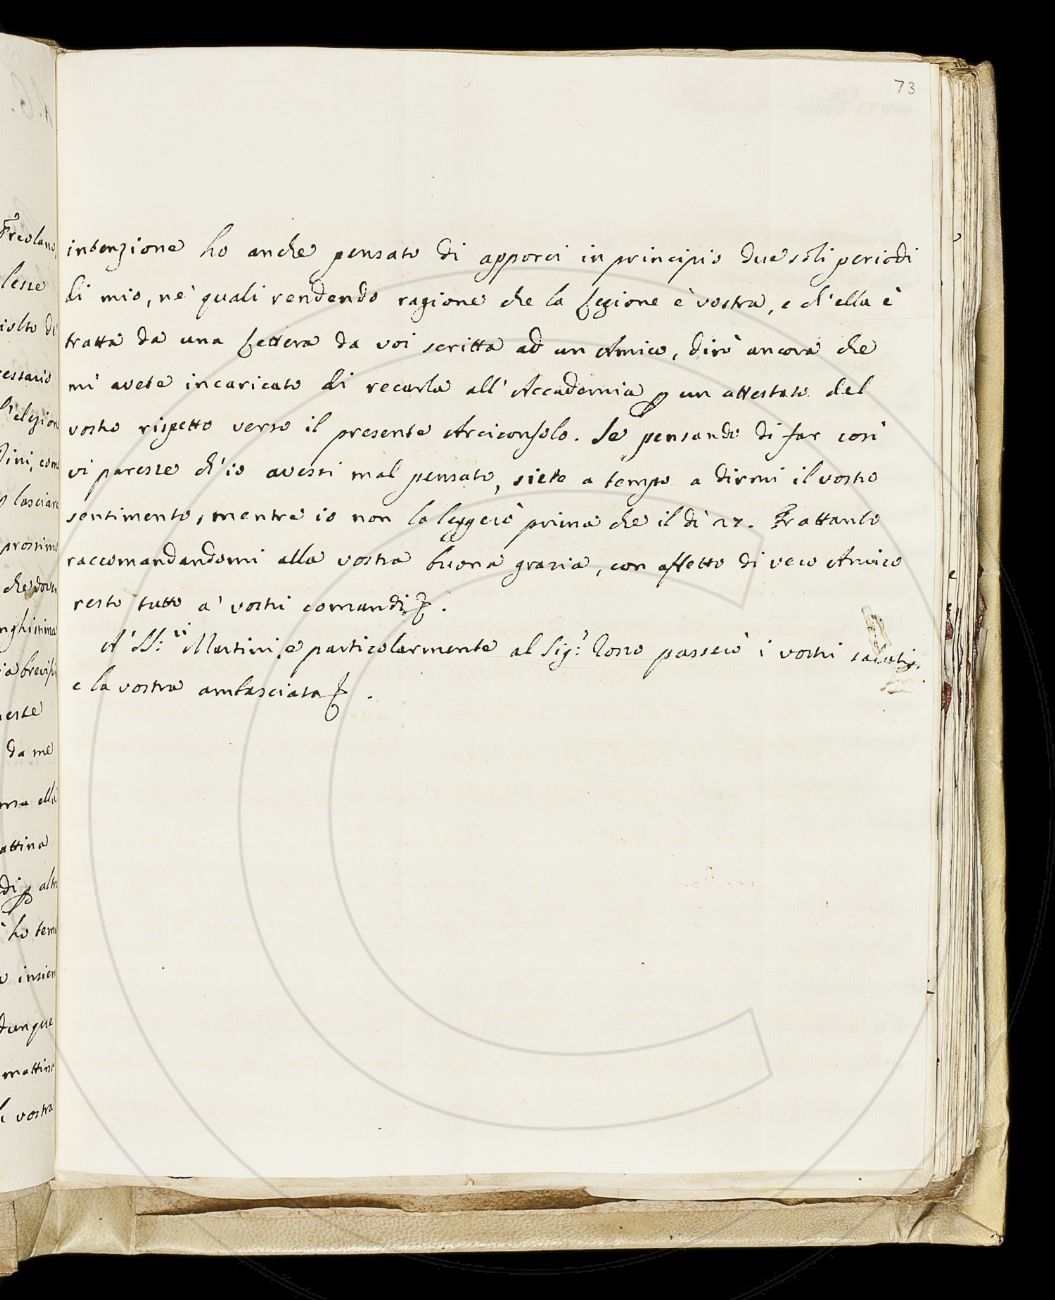 73
intenzione ho anche pensato di apporci in principio due soli periodi
di mio, ne' quali rendendo ragione che la Lezione è vostra, e ch'ella è
tratta da una Lettera da voi scritta ad un Amico, dirò ancora che
mi avete incaricato di recarla all'Accademia p un attestato del
vostro rispetto verso il presente Arciconsolo. Se pensando di far così
vi paresse ch'io avessi mal pensato, siete a tempo a dirmi il vostro
sentimento, mentre io non la leggerò prima che il dì 27. Frattanto
raccomandandomi alla vostra buona grazia, con affetto di vero Amico
resto tutto a' vostri comandi.
A' SS:ri Martini, e particolarmente al Sig:r Rosso passerò i vostri saluti,
e la vostra ambasciata.
Freolano
lesse
da me
ma ella
attina
di p altr
ho tem
insiem
dunque
mattina
vostra